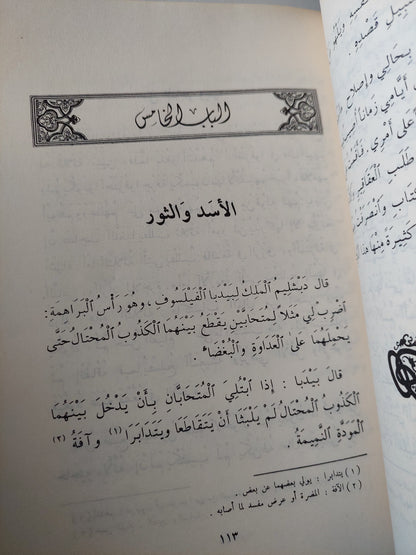 الباب الخامس
الأسد والثور
قال دبشليم الملك لبيدبا الفيلسوف، وهو رأس البراهمة:
اضرب لي مثلاً لمتحابين يقطع بينهما الكذوب المحتال حتى
يحملهما على العداوة والبغضاء.
قال بيدبا: إذا ابتلي المتحابان بأن يدخل بينهما
الكذوب المحتال لم يلبثا أن يتقاطعا ويتدابرا (١) وآفة (٢)
المودة النميمة.
(١) يتدابرا: يولي بعضهما عن بعض.
(٢) الآفة: المضرة أو عرض مفسد لما أصابه.
١١٣
قصده.
بحالي وإصلاح
أيامي زماناً
على أمري.
طلب
كثيرة منها